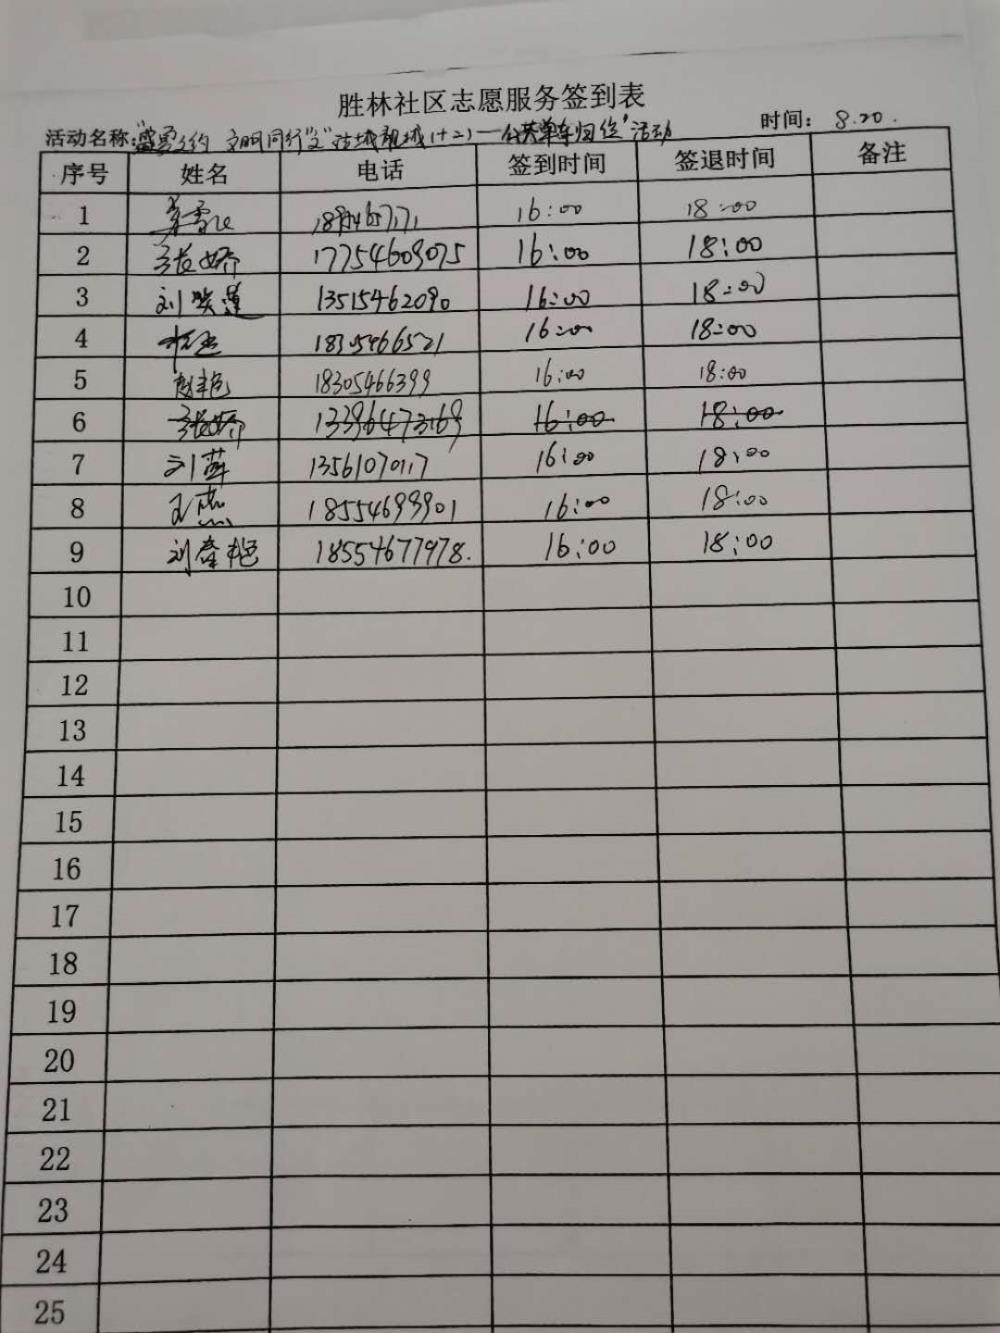 胜林社区志愿服务签到表
活动名称: 文明同行 (十二)—公共单车归位"活动 时间: 8.20.
序号 姓名 电话 签到时间 签退时间 备注
1 16:00 18:00
2 张娇 17754609075 16:00 18:00
3 刘 莲 13515462090 16:00 18:00
4 18305466521 16:00 18:00
5 赵艳 18305466399 16:00 18:00
6 张娇 13396473169 16:00 18:00
7 刘萍 13561070117 16:00 18:00
8 王燕 18554693901 16:00 18:00
9 刘 艳 18554677978. 16:00 18:00
10
11
12
13
14
15
16
17
18
19
20
21
22
23
24
25